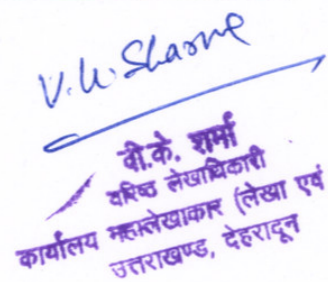 V.K. Sharma
वी.के. शर्मा
वरिष्ठ लेखाधिकारी
कार्यालय महालेखाकार (लेखा एवं
उत्तराखण्ड, देहरादून